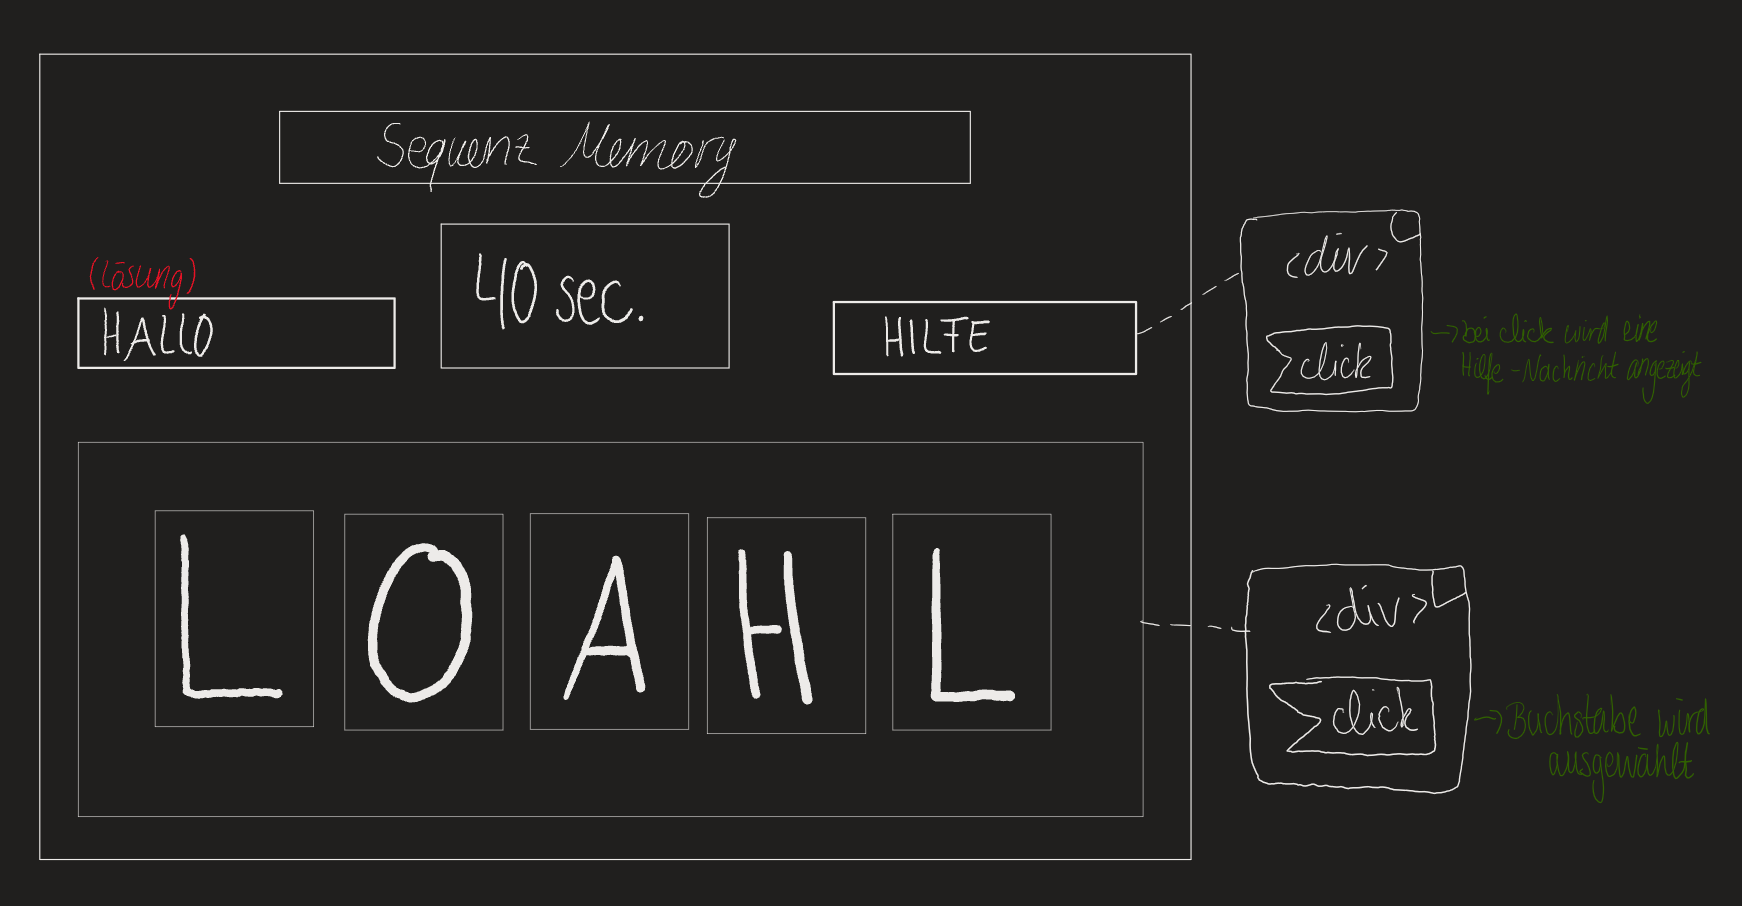 Sequenz Memory
(Lösung)
HALLO
40 sec.
HILFE
<div>
click
→ bei click wird eine
Hilfe-Nachricht angezeigt
L O A H L
<div>
click
→ Buchstabe wird
ausgewählt